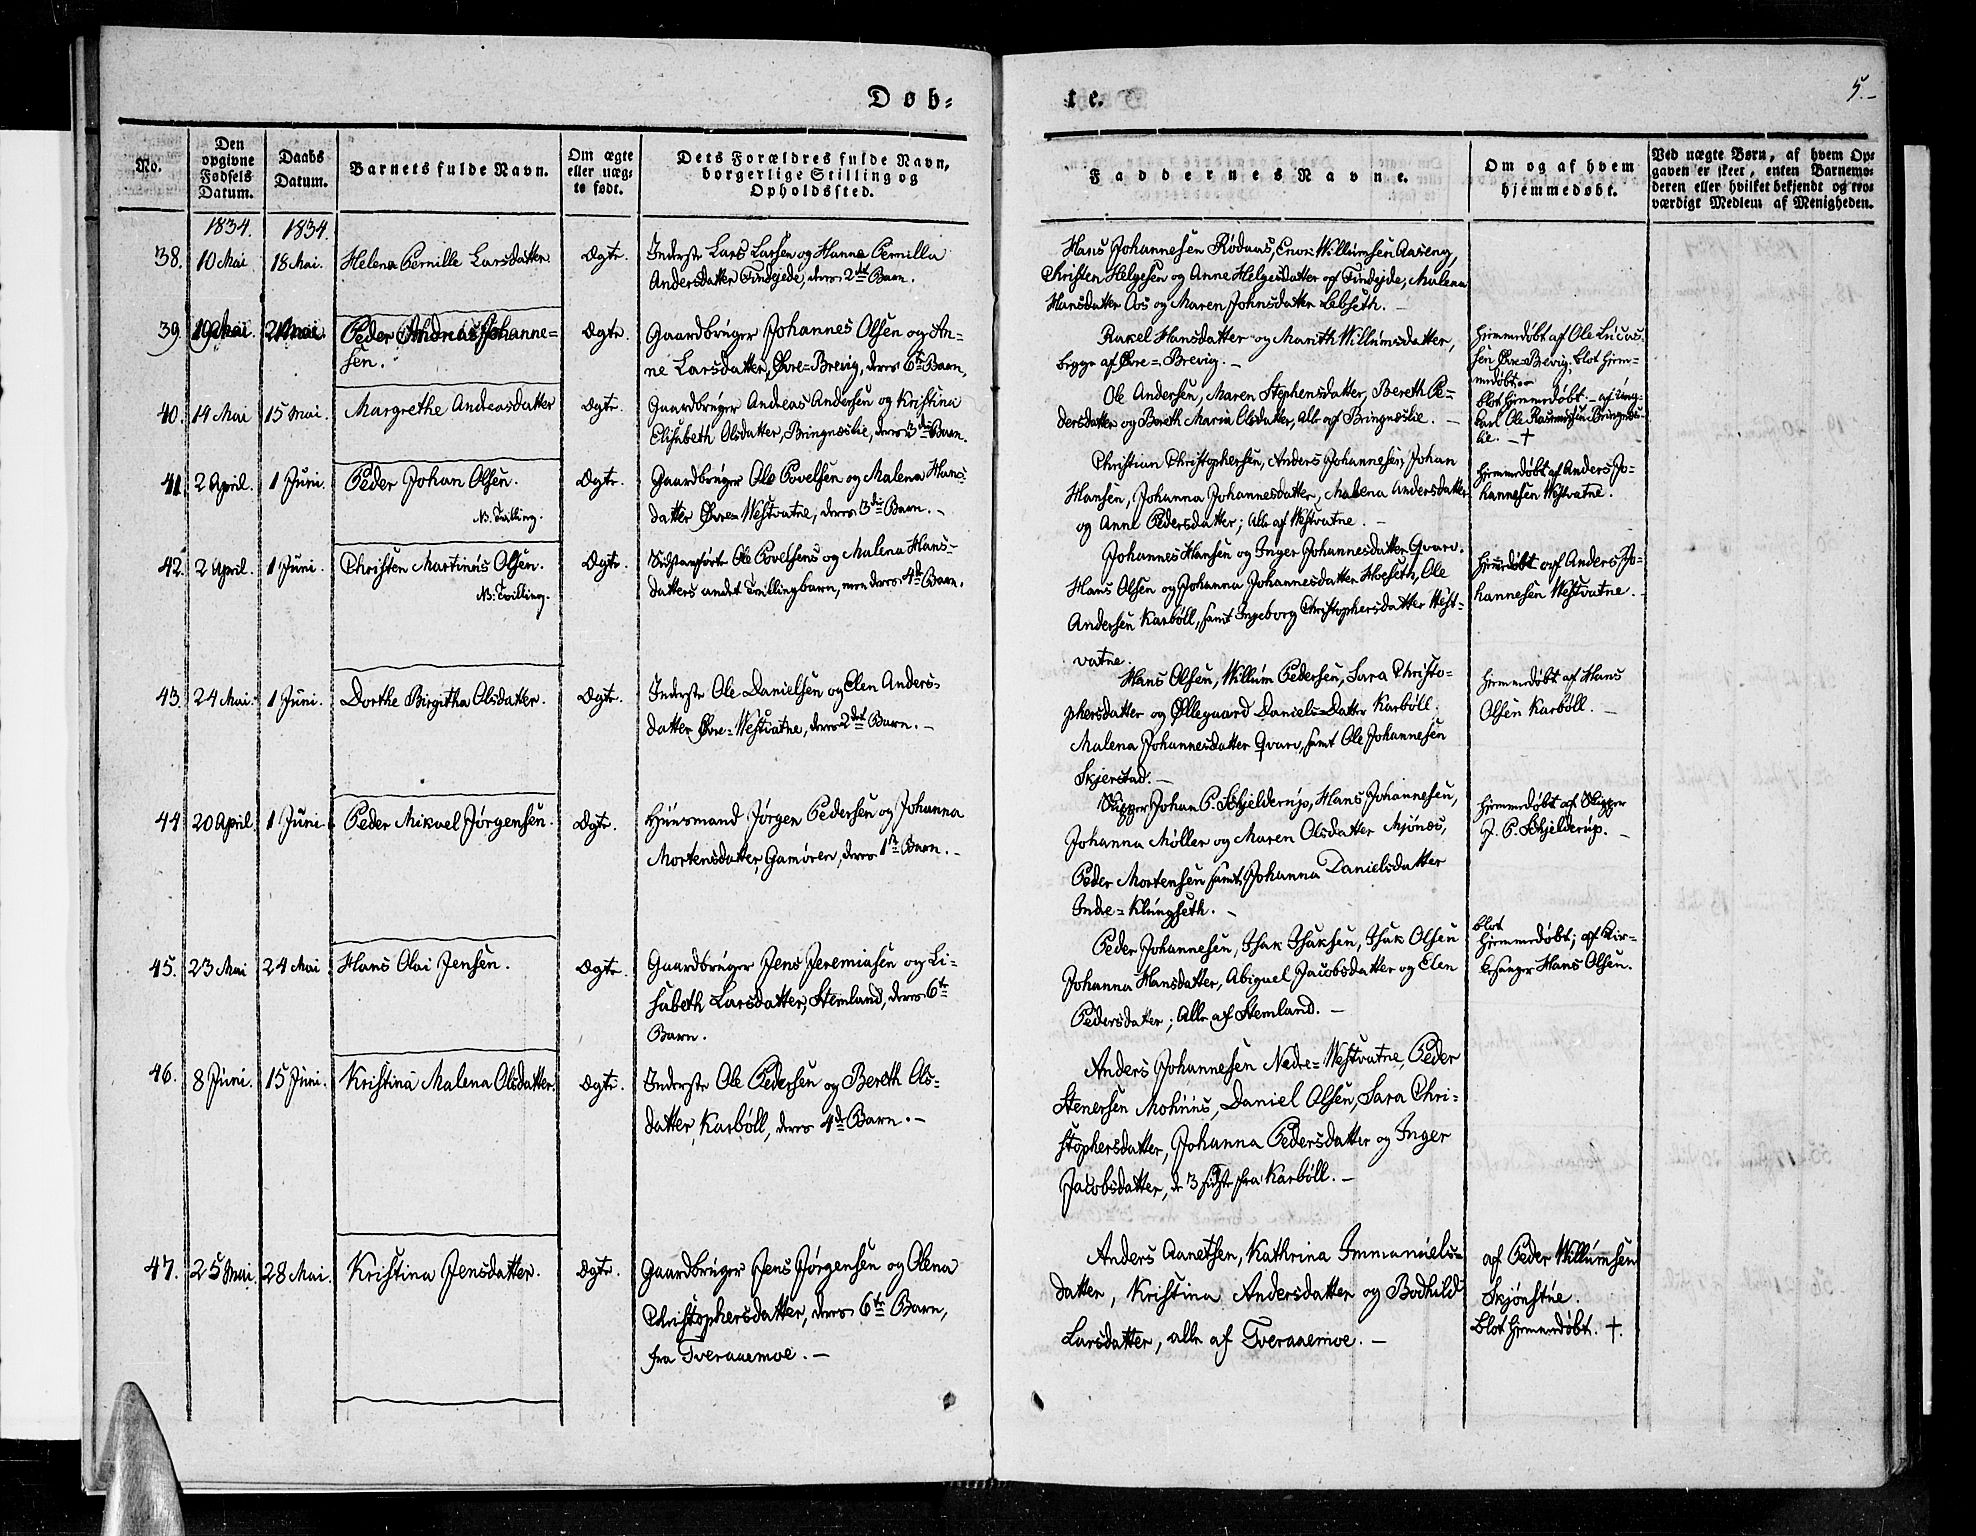 Døb-
No.
Den
opgivne
Fødsels
Datum.
Daabs
Datum.
Barnets fulde Navn.
Om ægte
eller uæg-
te født.
Dets Forældres fulde Navn,
borgerlige Stilling og
Opholdssted.
1834. 1834.
38. 10 Mai 18 Mai. Helena Pernille Larsdatter Ægte. Inderste Lars Larsen og Hanna Pernilla
Andersdatter Findejde, deres 2det Barn.
39. 19 Mai 21 Mai Peder Johanne-
sen. Ægte. Gaardbruger Johannes Olsen og An-
ne Larsdatter, Øvre-Brevig, deres 6te Barn.
40. 14 Mai 15 Mai. Margrethe Andreasdatter Ægte. Gaardbruger Andreas Andersen og Kristina
Elisabeth Olsdatter, Bringneslie, deres 3die Barn.
41. 2 April. 1 Juni. Peder Johan Olsen. Ægte. Gaardbruger Ole Povelsen og Malena Hans-
NB. Tvilling. datter Øvre-Westvatne, deres 3die Barn. -
42. 2 April. 1 Juni. Christen Martinus Olsen. Ægte. Sidstanførte Ole Povelsens og Malena Hans-
NB. Tvilling. datters andet Tvillingbarn, men deres 4de Barn.
43. 24 Mai. 1 Juni. Dorthe Birgitha Olsdatter. Ægte. Inderste Ole Danielsen og Elen Anders-
datter Øvre-Westvatne, deres 2det Barn. -
44. 20 April. 1 Juni. Peder Mikael Jørgensen. Ægte. Huusmand Jørgen Pedersen og Johanna
Mortensdatter, Gamøren, deres 1ste Barn. -
45. 23 Mai 24 Mai Hans Olai Jensen. Ægte. Gaardbruger Jens Jeremiasen og Li-
sabeth Larsdatter, Stemland, deres 6te
Barn.
46. 8 Juni. 15 Juni. Kristina Malena Olsdatter. Ægte. Inderste Ole Pedersen og Bereth Ols-
datter, Karbøll, deres 4de Barn. -
47. 25 Mai. 28 Mai. Kristina Jensdatter. Ægte. Gaardbruger Jens Jørgensen og Olena
Christophersdatter, deres 6te Barn,
fra Tveraaemoe. -
te.
5.-
Faddernes Navne.
Om og af hvem
hjemmedøbt.
Ved uægte Børn, af hvem Op-
gaven er skeet, enten Barnemo-
deren eller hvilket bekjendt og tro-
værdigt Medlem af Menigheden.
Hans Johannesen Rødaas, Enok Willumsen Aaseng,
Christen Helgesen og Anne Helgesdatter af Findejde, Malena
Hansdatter Aas og Maren Johnsdatter Lebseth. -
Rakel Hansdatter og Marith Willumsdatter,
begge af Øvre-Brevig. -
Hjemmedøbt af Ole Lucas-
sen Øvre-Brevig, blot hjem-
medøbt.
Ole Andersen, Maren Stephensdatter, Bereth Pe-
dersdatter og Bereth Maria Olsdatter, Alle af Bringneslie. -
blot hjemmedøbt. - af Ung-
karl Ole Rasmussen Bringnes-
lie. - †
Christian Christophersen, Anders Johannesen, Johan
Hansen, Johanna Johannesdatter, Malena Andersdatter
og Anne Pedersdatter; Alle af Westvatne. -
Hjemmedøbt af Anders Jo-
hannesen Westvatne.
Johannes Hansen og Inger Johannesdatter Qvarv.
Hans Olsen og Johanna Johannesdatter Hoseth, Ole
Andersen Karbøll, samt Ingeborg Christophersdatter West-
vatne.
Hjemmedøbt af Anders Jo-
hannesen Westvatne. -
Hans Olsen, Willum Pedersen, Sara Christo-
phersdatter og Øllegaard Daniels-Datter Karbøll.
Malena Johannesdatter Qvarv, samt Ole Johannesen
Skjerstad. -
Hjemmedøbt af Hans
Olsen Karbøll. -
Skipper Johan P. Schjelderup, Hans Johannesen,
Johanna Møller og Maren Olsdatter Mjønes,
Peder Mortensen samt Johanna Danielsdatter
Indre-Klungseth. -
Hjemmedøbt af Skipper
J. P. Schjelderup. -
Peder Johannesen, Isak Isaksen, Isak Olsen
Johanna Hansdatter, Abigael Jacobsdatter og Elen
Pedersdatter; Alle af Stemland. -
blot
Hjemmedøbt; af Kir-
kesanger Hans Olsen.
Anders Johannesen Nedre-Westvatne, Peder
Stenersen Mohuus, Daniel Olsen, Sara Chri-
stophersdatter, Johanna Pedersdatter og Inger
Jacobsdatter, de 3 sidste fra Karbøll. -
Anders Aanetsen, Kathrina Immanuels-
datter, Kristina Andersdatter og Bodhild
Larsdatter, alle af Tveraaemoe. -
af Peder Willumsen
Skjønstue.
blot hjemmedøbt. †.